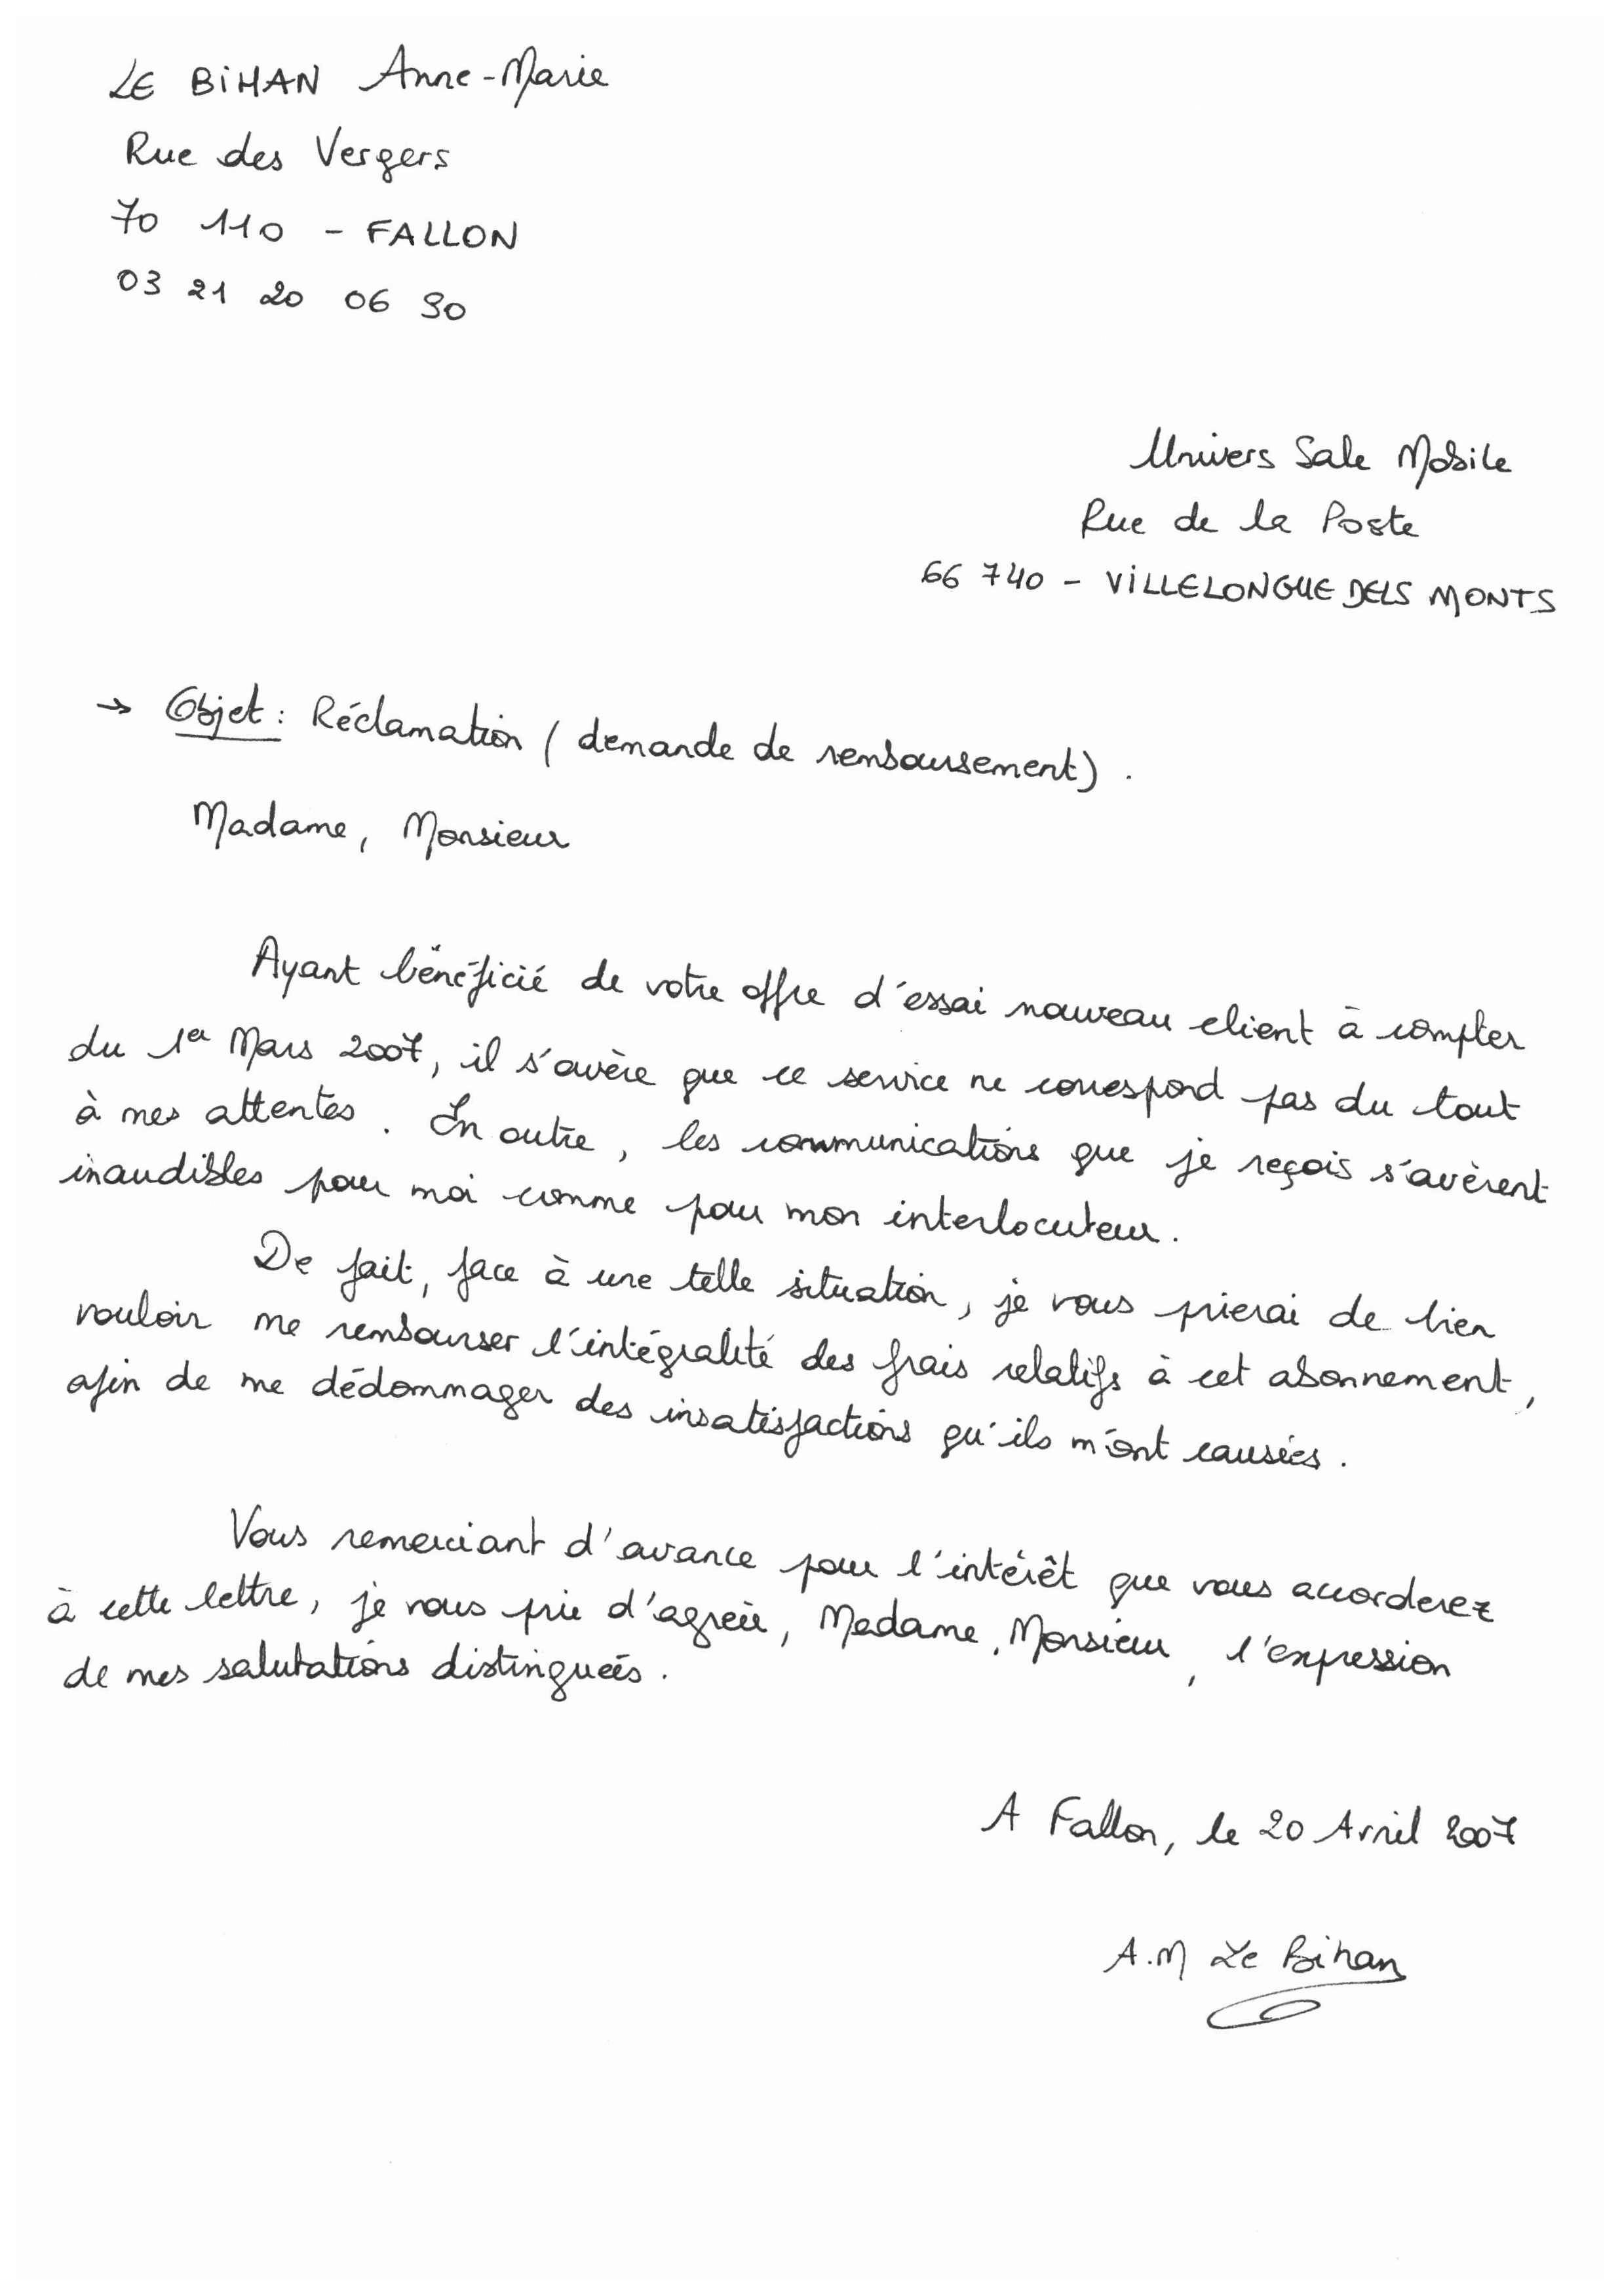 LE BIHAN Anne-Marie
Rue des Vergers
70 110 - FALLON
03 21 20 06 90
Univers Sale Mobile
Rue de la Poste
66 740 - VILLELONGUE DELS MONTS
→ Objet : Réclamation ( demande de remboursement) .
Madame, Monsieur
Ayant bénéficié de votre offre d'essai nouveau client à compter
du 1er Mars 2007, il s'avère que ce service ne correspond pas du tout
à mes attentes. En outre, les communications que je reçois s'avèrent
inaudibles pour moi comme pour mon interlocuteur.
De fait, face à une telle situation, je vous prierai de bien
vouloir me rembourser l'intégralité des frais relatifs à cet abonnement,
afin de me dédommager des insatisfactions qu'ils m'ont causées.
Vous remerciant d'avance pour l'intérêt que vous accorderez
à cette lettre, je vous prie d'agréer, Madame, Monsieur, l'expression
de mes salutations distinguées.
A Fallon, le 20 Avril 2007
A.M Le Bihan